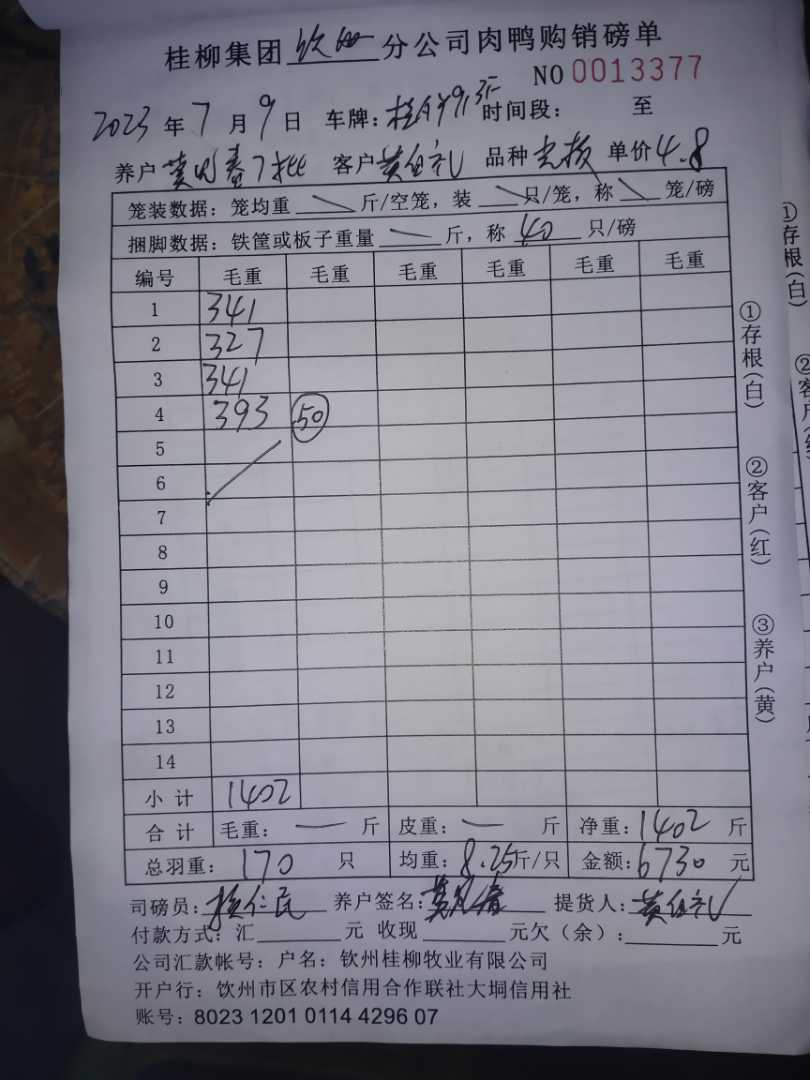 桂柳集团 钦州 分公司肉鸭购销磅单
NO 0013377
2023 年 7 月 9 日 车牌: 时间段: 至
养户 客户 黄伍礼 品种 单价 4.8
笼装数据: 笼均重 斤/空笼, 装 只/笼, 称 笼/磅
捆脚数据: 铁筐或板子重量 — 斤, 称 40 只/磅
编号 毛重 毛重 毛重 毛重 毛重 毛重
1 341
2 327
3 341
4 393 50
5
6
7
8
9
10
11
12
13
14
小计 1402
合计 毛重: — 斤 皮重: — 斤 净重: 1402 斤
总羽重: 170 只 均重: 8.25 斤/只 金额: 6730 元
司磅员: 杨仁民 养户签名: 提货人: 黄伍礼
付款方式: 汇 元 收现 元欠(余): 元
公司汇款帐号: 户名: 钦州桂柳牧业有限公司
开户行: 饮州市区农村信用合作联社大垌信用社
账号: 8023 1201 0114 4296 07
①存根(白) ②客户(红) ③养户(黄)
①存根(白)
②客户